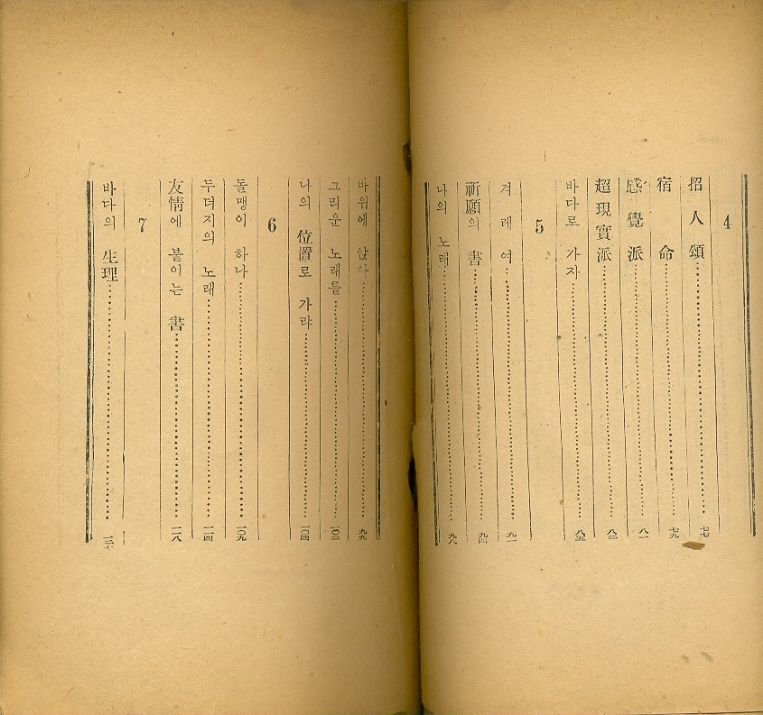 4
招人頌……七七
宿命……七九
感覺派……八一
超現實派……八三
바다로 가자……八五
5
겨레여……九一
祈願의 書……九四
나의 노래……九六
바위에 앉아……九九
그리운 노래를……一〇二
나의 位置로 가랴……一〇四
6
돌맹이 하나……一〇九
두더지의 노래……一一四
友情에 붙이는 書……一一八
7
바다의 生理